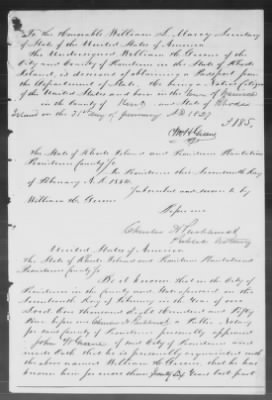 To the Honorable William L. Marcy Secretary
of State of the United States of America
The Undersigned William H. Greene of the
City and County of Providence in the State of Rhode
Island, is desirous of obtaining a Passport from
the Department of State. He being a Native Citizen
of the United States and born in the Town of Warwick
in the County of Kent and State of Rhode
Island on the 25th day of January A.D. 1827
Wm H Greene
The State of Rhode Island and Providence Plantations
Providence County Ss
In Providence this Seventeenth day
of February A.D.
Subscribed and sworn to by
William H. Greene
Before me
Charles
Public Notary
United States of America
The State of Rhode Island and Providence Plantations
Providence County Ss
Be it known that in the City of
Providence in the County and State aforesaid on the
Seventeenth day of February in the Year of our
Lord One Thousand Eight Hundred and Fifty
before me Charles a Public Notary
for said County of Providence personally appeared
John W Greene of said City of Providence and
made oath that he is personally acquainted with
the above named William H. Greene, that he has
known him for more than twenty six Years last past